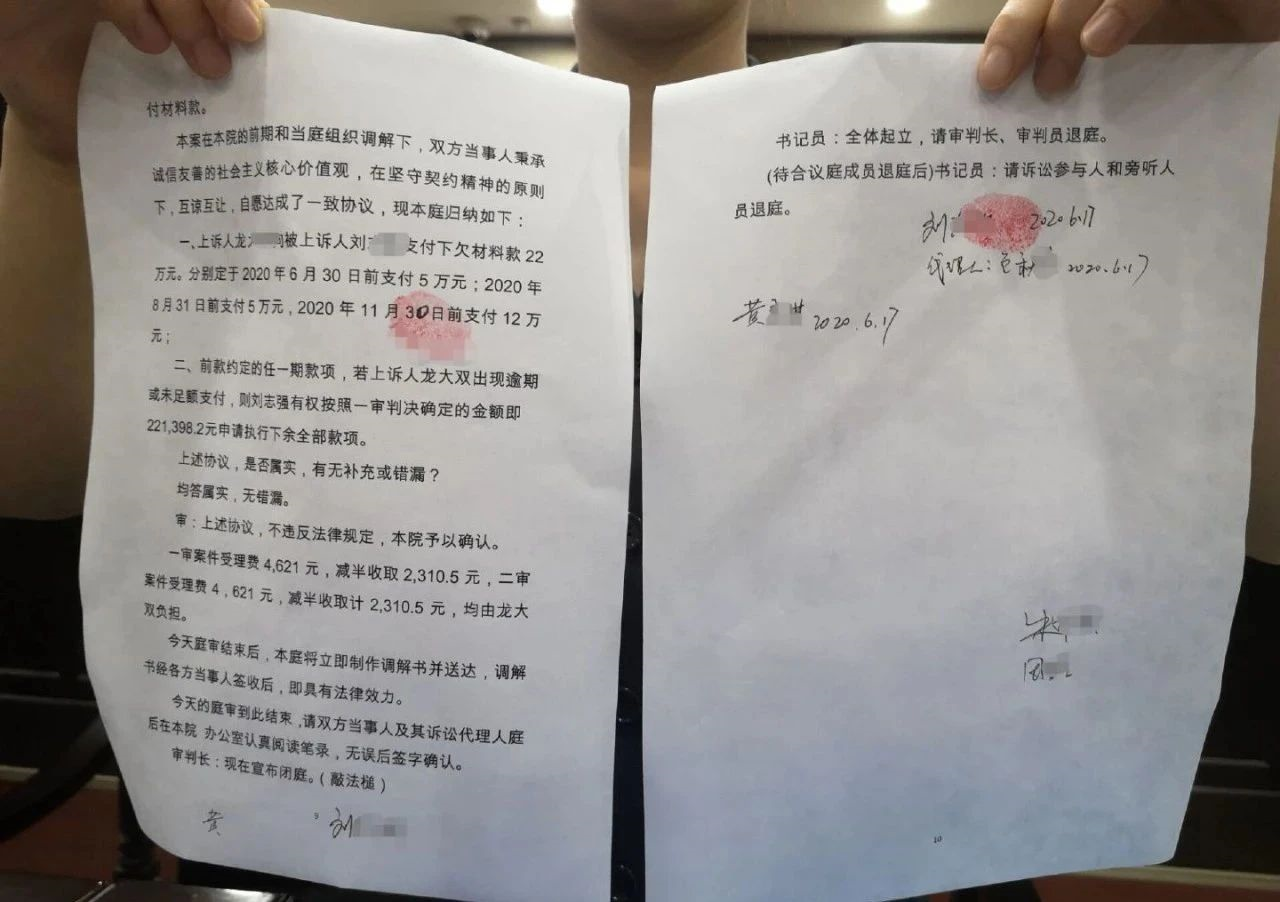 付材料款。
本案在本院的前期和当庭组织调解下，双方当事人秉承
诚信友善的社会主义核心价值观，在坚守契约精神的原则
下，互谅互让，自愿达成了一致协议，现本庭归纳如下：
一、上诉人龙 向被上诉人刘 支付下欠材料款 22
万元。分别定于 2020 年 6 月 30 日前支付 5 万元；2020 年
8 月 31 日前支付 5 万元，2020 年 11 月 30 日前支付 12 万
元；
二、前款约定的任一期款项，若上诉人龙大双出现逾期
或未足额支付，则刘志强有权按照一审判决确定的金额即
221,398.2元申请执行下余全部款项。
上述协议，是否属实，有无补充或错漏？
均答属实，无错漏。
审：上述协议，不违反法律规定，本院予以确认。
一审案件受理费 4,621 元，减半收取 2,310.5 元，二审
案件受理费 4，621 元，减半收取计 2,310.5 元，均由龙大
双负担。
今天庭审结束后，本庭将立即制作调解书并送达，调解
书经各方当事人签收后，即具有法律效力。
今天的庭审到此结束，请双方当事人及其诉讼代理人庭
后在本院 办公室认真阅读笔录，无误后签字确认。
审判长：现在宣布闭庭。（敲法槌）
黄 9 刘
书记员：全体起立，请审判长、审判员退庭。
(待合议庭成员退庭后)书记员：请诉讼参与人和旁听人
员退庭。
刘 2020.6.17
代理人： 2020.6.17
黄 2020.6.17
10